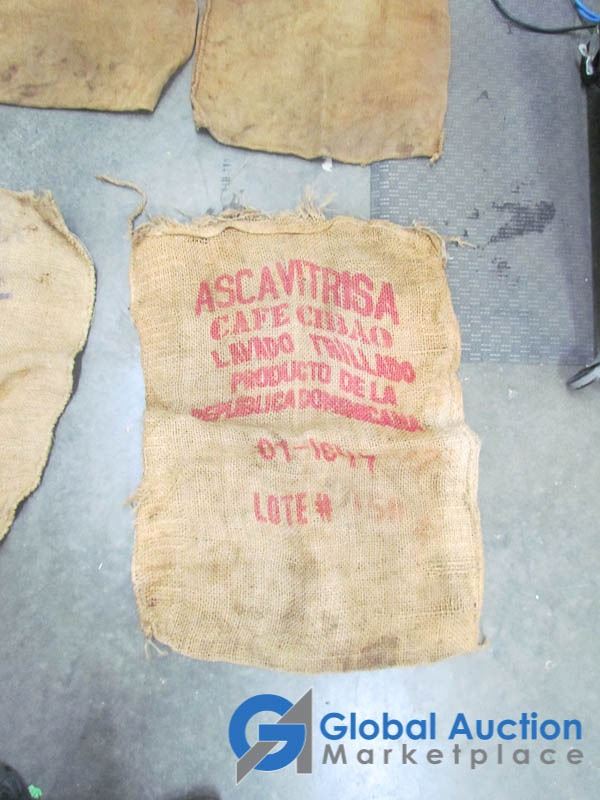 ASCAVITRISA
CAFE CIBAO
LAVADO TRILLADO
PRODUCTO DE LA
REPUBLICA DOMINICANA
LOTE #
Global Auction
Marketplace